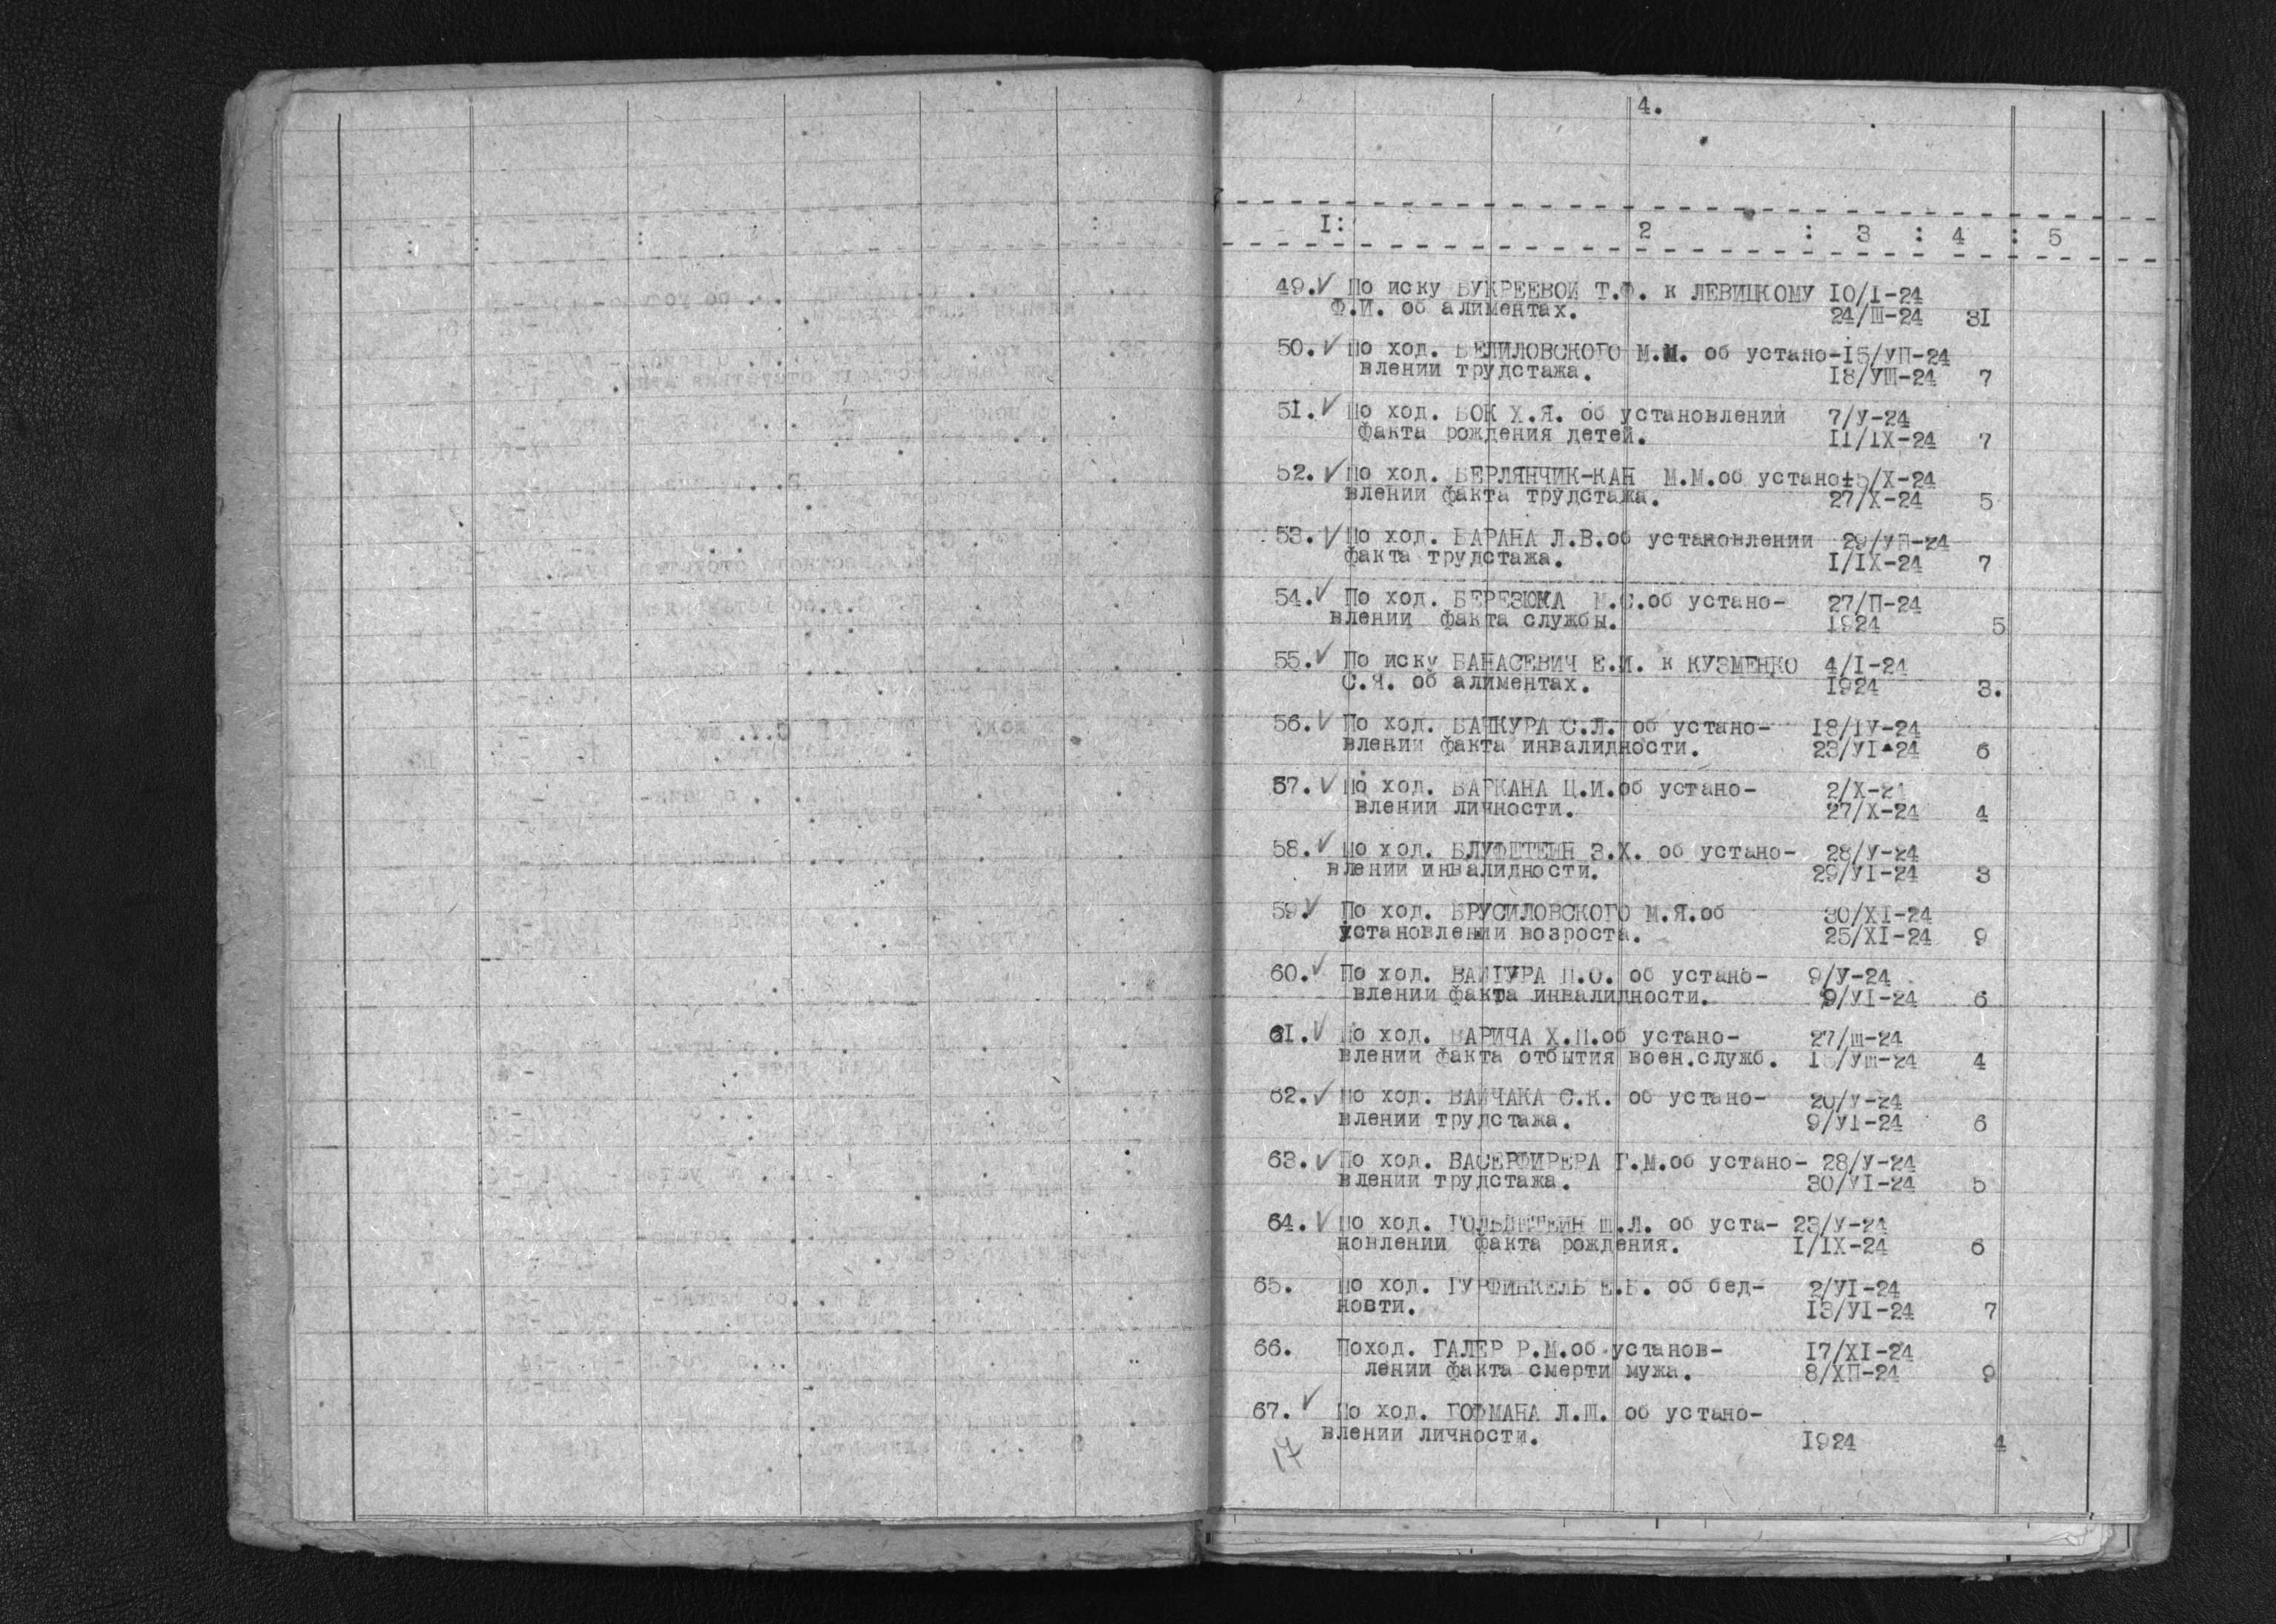 4.
I: 2 : 3 : 4 : 5
49. По иску БУКРЕЕВОЙ Т.Ф. к ЛЕВИЦКОМУ 10/I-24
Ф.И. об алиментах. 24/Ш-24 31
50. По ход. БЕЛИЛОВСКОГО М.М. об устано-15/УП-24
влении трудстажа. 18/УШ-24 7
51. По ход. БОК Х.Я. об установлений 7/У-24
факта рождения детей. 11/IX-24 7
52. По ход. БЕРЛЯНЧИК-КАН М.М.об устано±5/Х-24
влении факта трудстажа. 27/Х-24 5
53. По ход. БАРАНА Л.В.об установлении 29/УП-24
факта трудстажа. I/IX-24 7
54. По ход. БЕРЕЗЮКА М.С.об устано- 27/П-24
влении факта службы. 1924 5
55. По иску БАНАСЕВИЧ Е.И. к КУЗМЕНКО 4/I-24
С.Я. об алиментах. 1924 3.
56. По ход. БАЧКУРА С.Л. об устано- 18/IУ-24
влении факта инвалидности. 23/УI-24 6
57. По ход. БАРКАНА Ц.И.об устано- 2/Х-24
влении личности. 27/Х-24 4
58. По ход. БЛУФШТЕЙН З.Х. об устано- 28/У-24
влении инвалидности. 29/УI-24 3
59. По ход. БРУСИЛОВСКОГО М.Я.об 30/XI-24
установлении возроста. 25/XI-24 9
60. По ход. П.О. об устано- 9/У-24
влении факта инвалидности. 9/УI-24 6
61. По ход. ВАРИЧА Х.П.об устано- 27/Ш-24
влении факта отбытия воен.служб. /УШ-24 4
62. По ход. ВАЙЧАКА С.К. об устано- 20/У-24
влении трудстажа. 9/УI-24 6
63. По ход. ВАСЕРФИРЕРА Г.М.об устано- 28/У-24
влении трудстажа. 30/УI-24 5
64. По ход. ГОЛЬДШТЕЙН Ш.Л. об уста- 23/У-24
новлении факта рождения. I/IX-24 6
65. По ход. ГУРФИНКЕЛЬ Е.Б. об бед- 2/УI-24
новти. 13/УI-24 7
66. Поход. ГАЛЕР Р.М.об установ- 17/XI-24
лении факта смерти мужа. 8/ХП-24 9
67. По ход. ГОФМАНА Л.Ш. об устано-
влении личности. 1924 4
17